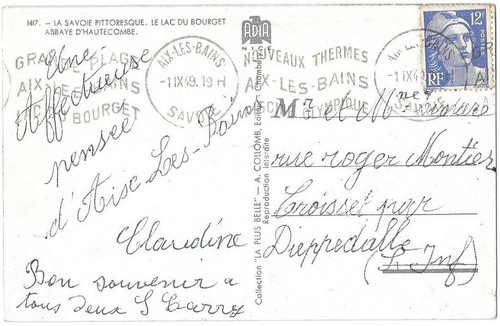 1417. - LA SAVOIE PITTORESQUE. LE LAC DU BOURGET
ABBAYE D'HAUTECOMBE.
GRANDE PLAGE
AIX-LES-BAINS
BOURGET
AIX-LES-BAINS
-1 IX 49. 19 H
SAVOIE
NOUVEAUX THERMES
AIX-LES-BAINS
OLYMPIQUE
12F
RF
Une
Affectueuse
pensée
d'Aix Les-Bains
Claudine
Bon souvenir a
tous deux
ADIA
Collection "LA PLUS BELLE" - A. COLLOMB, Editeur, Chambéry
Reproduction interdite
Mr et M
rue roger Montier
Croisset par
Dieppedalle
(S. Inf)